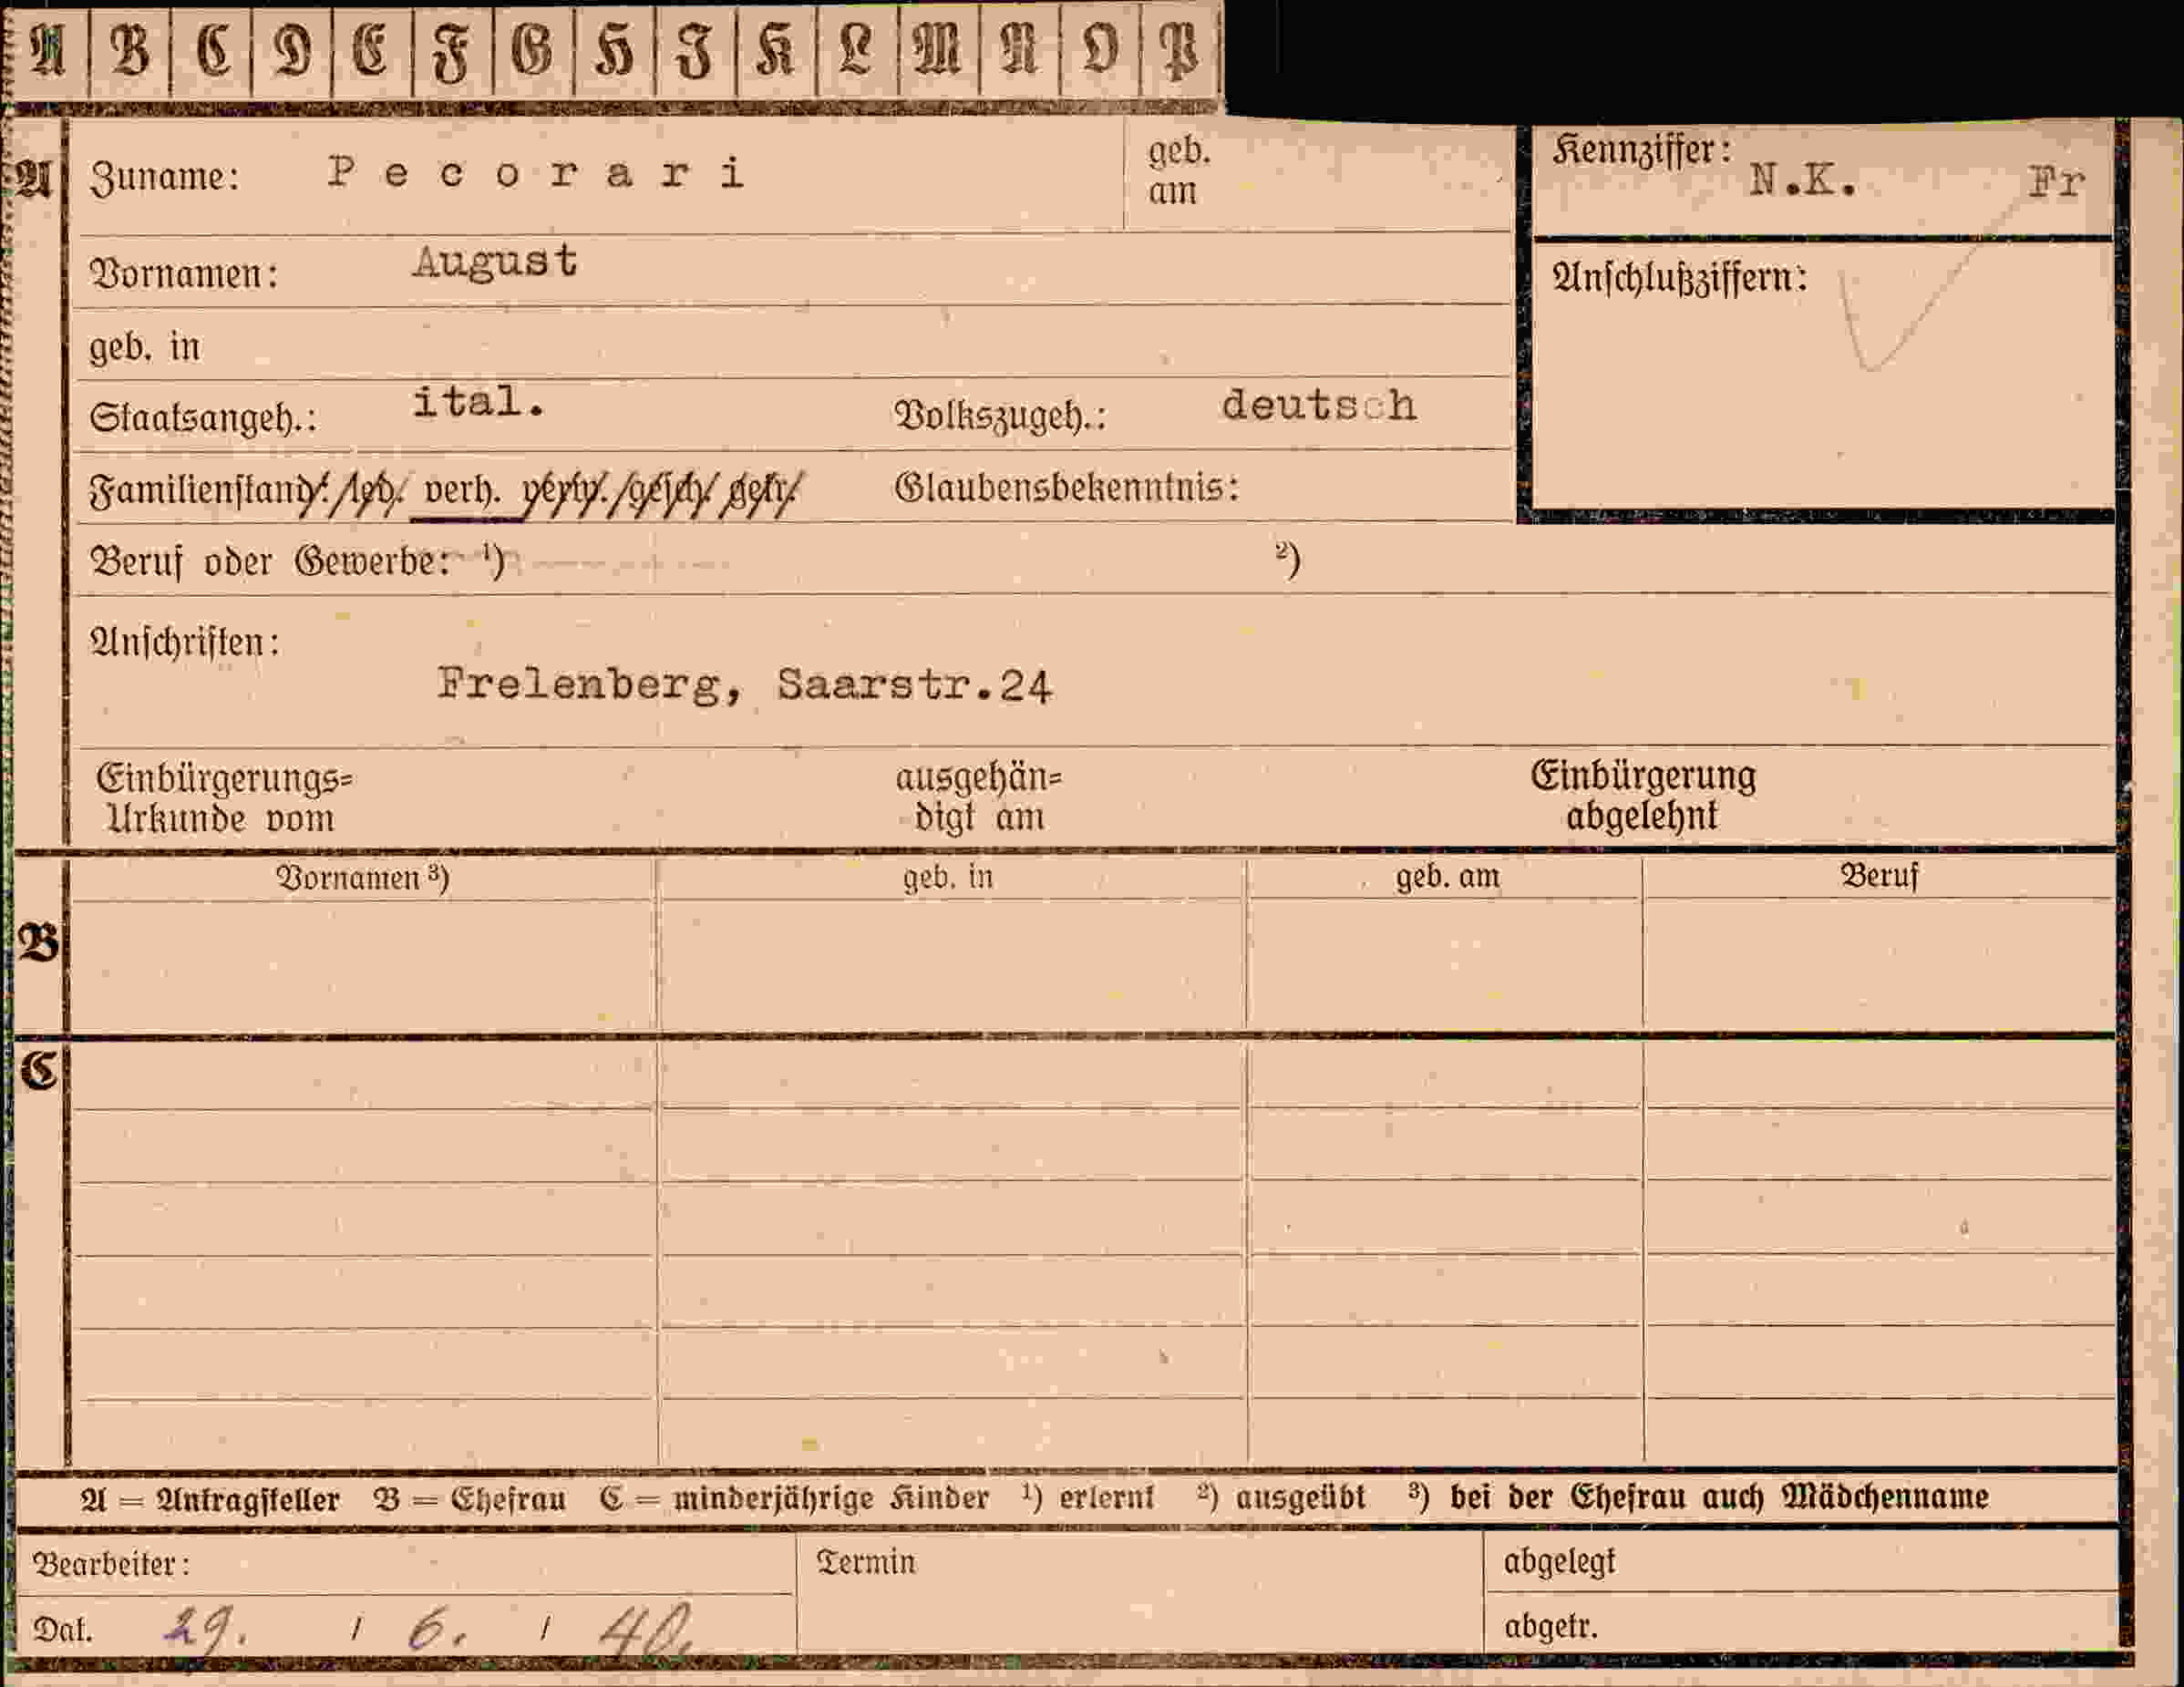 A B C D E F G H J K L M N O P
A Zuname: Pecorari geb. am Kennziffer: N.K. Fr
Vornamen: August Anschlußziffern:
geb. in
Staatsangeh.: ital. Volkszugeh.: deutsch
Familienstand: led. verh. verw. gesch. getr. Glaubensbekenntnis:
Beruf oder Gewerbe: ¹) ²)
Anschriften:
Frelenberg, Saarstr.24
Einbürgerungs= ausgehän= Einbürgerung
Urkunde vom digt am abgelehnt
Vornamen ³) geb. in geb. am Beruf
B
C
A = Antragsteller B = Ehefrau C = minderjährige Kinder ¹) erlernt ²) ausgeübt ³) bei der Ehefrau auch Mädchenname
Bearbeiter: Termin abgelegt
Dat. 29. / 6. / 40. abgetr.